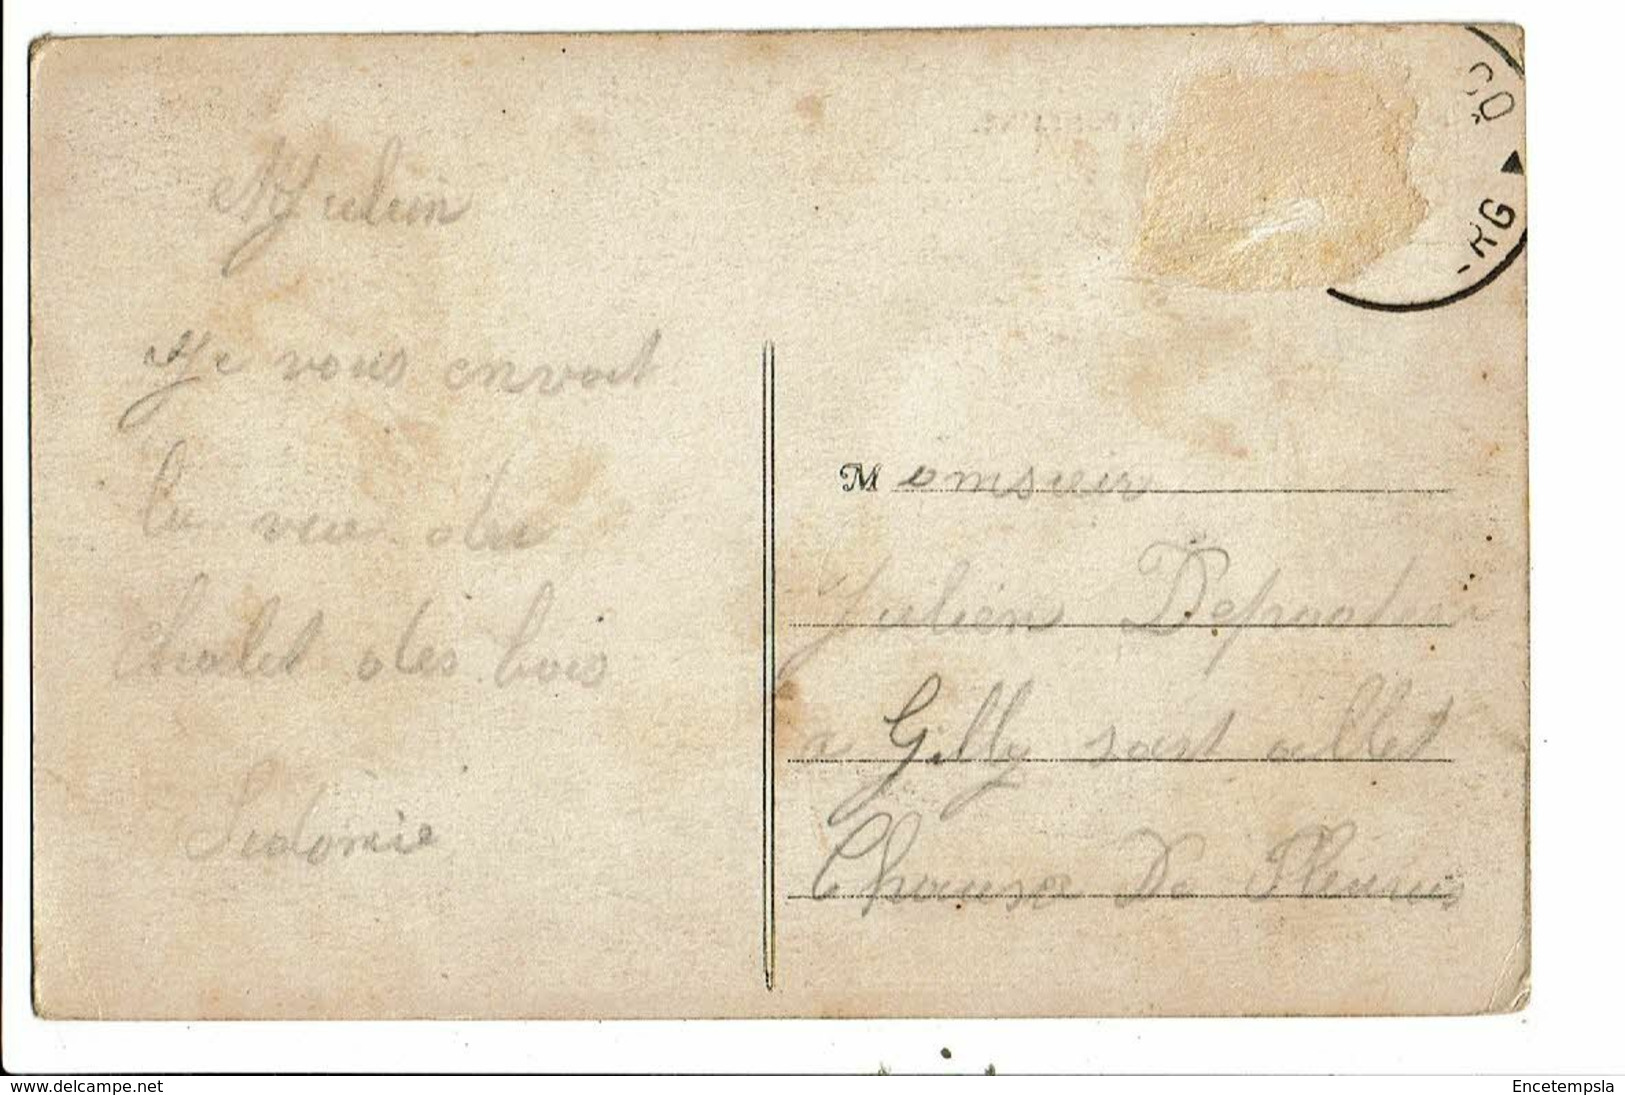 Julein
Je vous envoit
la vue du
chalet des bois
Sidonie
RG
Momsieir
Julien
a Gilly sart allet
Chause De Fleurus
www.delcampe.net
Encetempsla